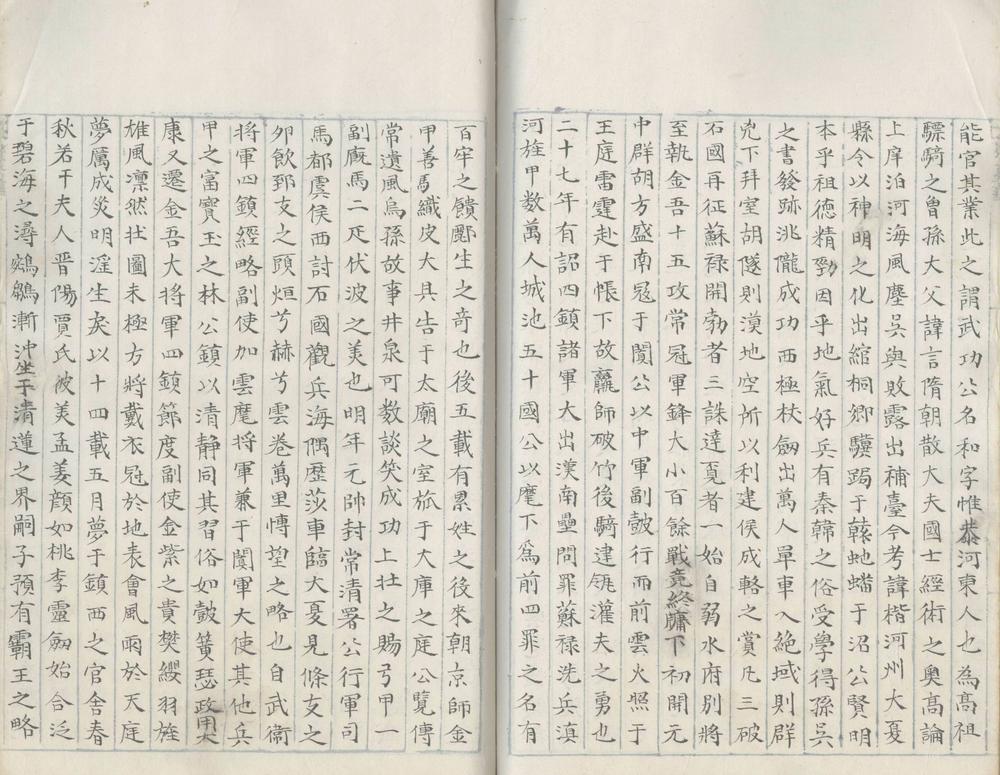 能官其業此之謂武功公名和字惟恭河東人也為髙祖
驃騎之曾孫大父諱言隋朝散大夫國士經術之奧髙論
上庠泊河海風塵吳與敗露出補臺令考諱楷河州大夏
縣令以神明之化出綰桐鄉驥跼于轅虵蟠于沼公賢明
本乎祖德精勁因乎地氣好兵有秦韓之俗受學得孫吳
之書發跡洮隴成功西極杖劔出萬人單車入絶域則群
兇下拜室胡隧則漠地空所以利建侯成輅之賞凡三破
石國再征蘇祿開勃者三誅達覔者一始自弱水府別將
至執金吾十五攻常冠軍鋒大小百餘戰竟終牗下初開元
中群胡方盛南冦于闐公以中軍副皷行而前雲火照于
王庭雷霆赴于帳下故羸師破竹後騎建瓴灌夫之勇也
二十七年有詔四鎮諸軍大出漠南壘問罪蘇祿洗兵滇
河旌甲数萬人城池五十國公以麾下為前四罪之名有
百牢之饋酈生之竒也後五載有累姓之後來朝京師金
甲善馬織皮大具告于太廟之室旅于大庫之庭公覽傳
常遺風烏孫故事井泉可数談笑成功上壮之賜弓甲一
副廐馬二疋伏波之美也明年元帥封常清署公行軍司
馬都虞侯西討石國觀兵海隅歷莎車臨大夏見條支之
卵飲郅支之頭烜兮赫兮雲卷萬里慱望之略也自武衛
將軍四鎮經略副使加雲麾将軍兼于闐軍大使其他兵
甲之富寳玉之林公鎮以清静同其習俗如皷簧瑟政用大
康又遷金吾大将軍四鎮節度副使金紫之貴樊纓羽旌
雄風凛然壮圖未極方將戴衣冠於地表會風雨於天庭
夢厲成災明淫生疾以十四載五月夢于鎮西之官舍春
秋若干夫人晋陽賈氏彼美孟姜顏如桃李靈劔始合泛
于碧海之潯鵷鶵漸沖坐于清蓮之界嗣子預有霸王之略